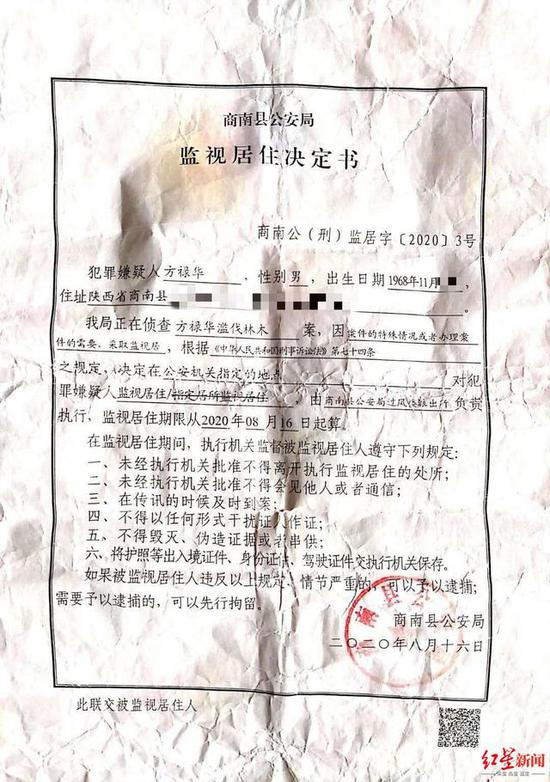 商南县公安局
监视居住决定书
商南公（刑）监居字〔2020〕3号
犯罪嫌疑人方禄华，性别男，出生日期1968年11月，
住址陕西省商南县
我局正在侦查 方禄华滥伐林木 案，因案件的特殊情况或者办理案
件的需要，采取监视居，根据《中华人民共和国刑事诉讼法》第七十四条
之规定，决定在公安机关指定的地点 对犯
罪嫌疑人监视居住/指定居所监视居住，由商南县公安局过风楼派出所负责
执行，监视居住期限从2020年08月16日起算。
在监视居住期间，执行机关监督被监视居住人遵守下列规定：
一、未经执行机关批准不得离开执行监视居住的处所；
二、未经执行机关批准不得会见他人或者通信；
三、在传讯的时候及时到案；
四、不得以任何形式干扰证人作证；
五、不得毁灭、伪造证据或者串供；
六、将护照等出入境证件、身份证件、驾驶证件交执行机关保存。
如果被监视居住人违反以上规定，情节严重的，可以予以逮捕；
需要予以逮捕的，可以先行拘留。
商南县公安局
二〇二〇年八月十六日
此联交被监视居住人
红星新闻